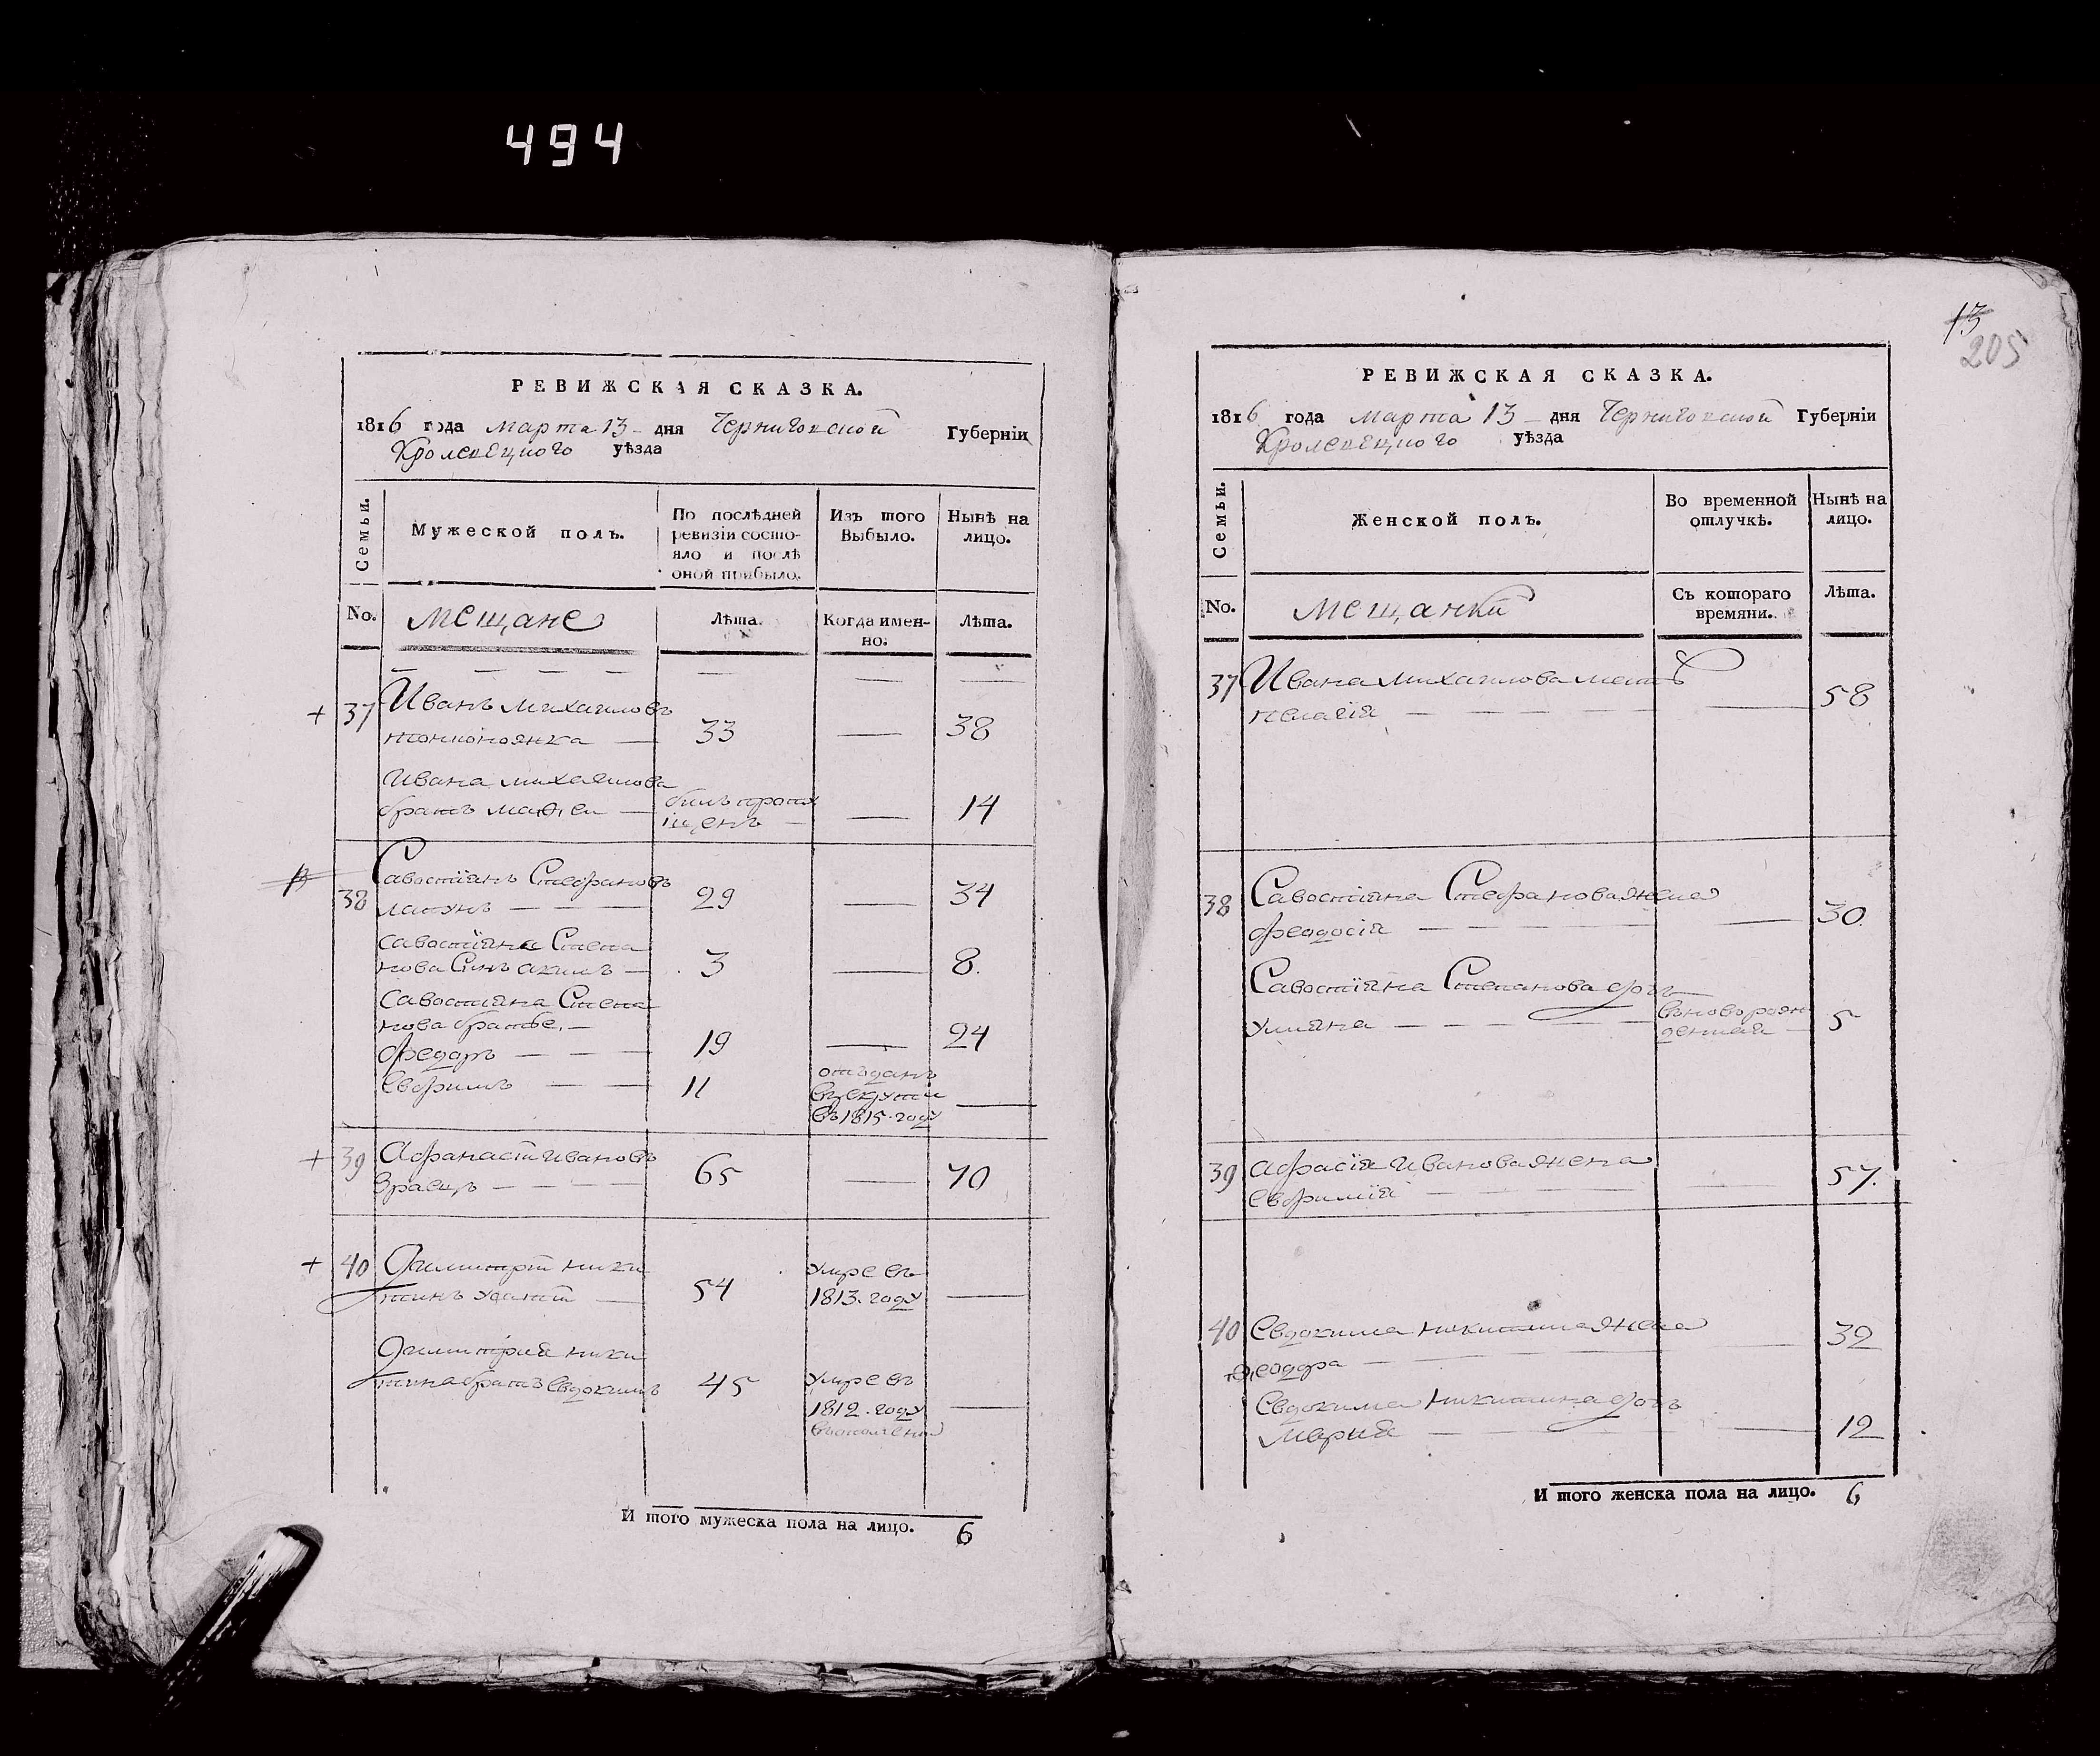 494
РЕВИЖСКАЯ СКАЗКА.
1816 года марта 13 - дня Черниговской Губерніи
Кролевецкого уѣзда
Семьи.
Мужеской полъ.
По послѣдней ревизіи состо-
яло и послѣ
оной прибыло.
Изъ того Выбыло.
Нынѣ на лицо.
No. мещане Лѣта. Когда имен-
но: Лѣта.
+ 37 Иванъ михаиловъ
33 — 38
Ивана михаилова
братъ 14
38 Савостіянъ Стефановъ
29 — 34
савостіяна Степа
нова Синъ акимъ — 3 — 8.
савостіяна Степа
нова братье, —
федоръ — — 19 — 24
Ефримъ — — 11 отъданъ
въ 1815. году —
+ 39 Афанасій Ивановъ
65 — 70
+ 40 Димитрій ники
тинъ 54 умре въ
1813. году —
Димитрия ники
тина братъ Евдокимъ 45 умре въ
1812. году —
И того мужеска пола на лицо. 6
13
205
РЕВИЖСКАЯ СКАЗКА.
1816 года марта 13 - дня Черниговской Губерніи
Кролевецкого уѣзда
Семьи.
Женской полъ.
Во временной отлучкѣ.
Нынѣ на лицо.
No. мещанки Съ котораго
времяни. Лѣта.
37 Ивана михаилова мать
пелагія — — — — 58
38 Савостіяна Стефанова жена
феодосія — — — — 30.
Савостіяна Степанова дочь
улияна — — — вновь рож
денная — 5
39 Афрасія Иванова жена
Ефримія — — — 57.
40 Евдокима никитина жена 32
Феодора —
Евдокима никитина дочь
Мария — — — 12
И того женска пола на лицо. 6